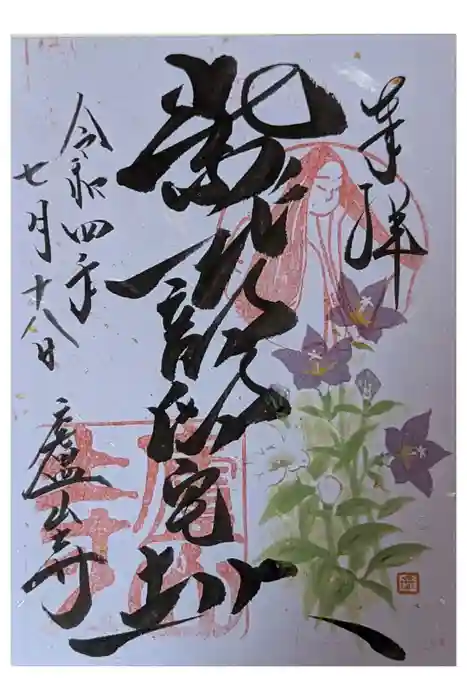 奉拝
紫式部邸宅址
令和四年
七月十八日
廬山寺